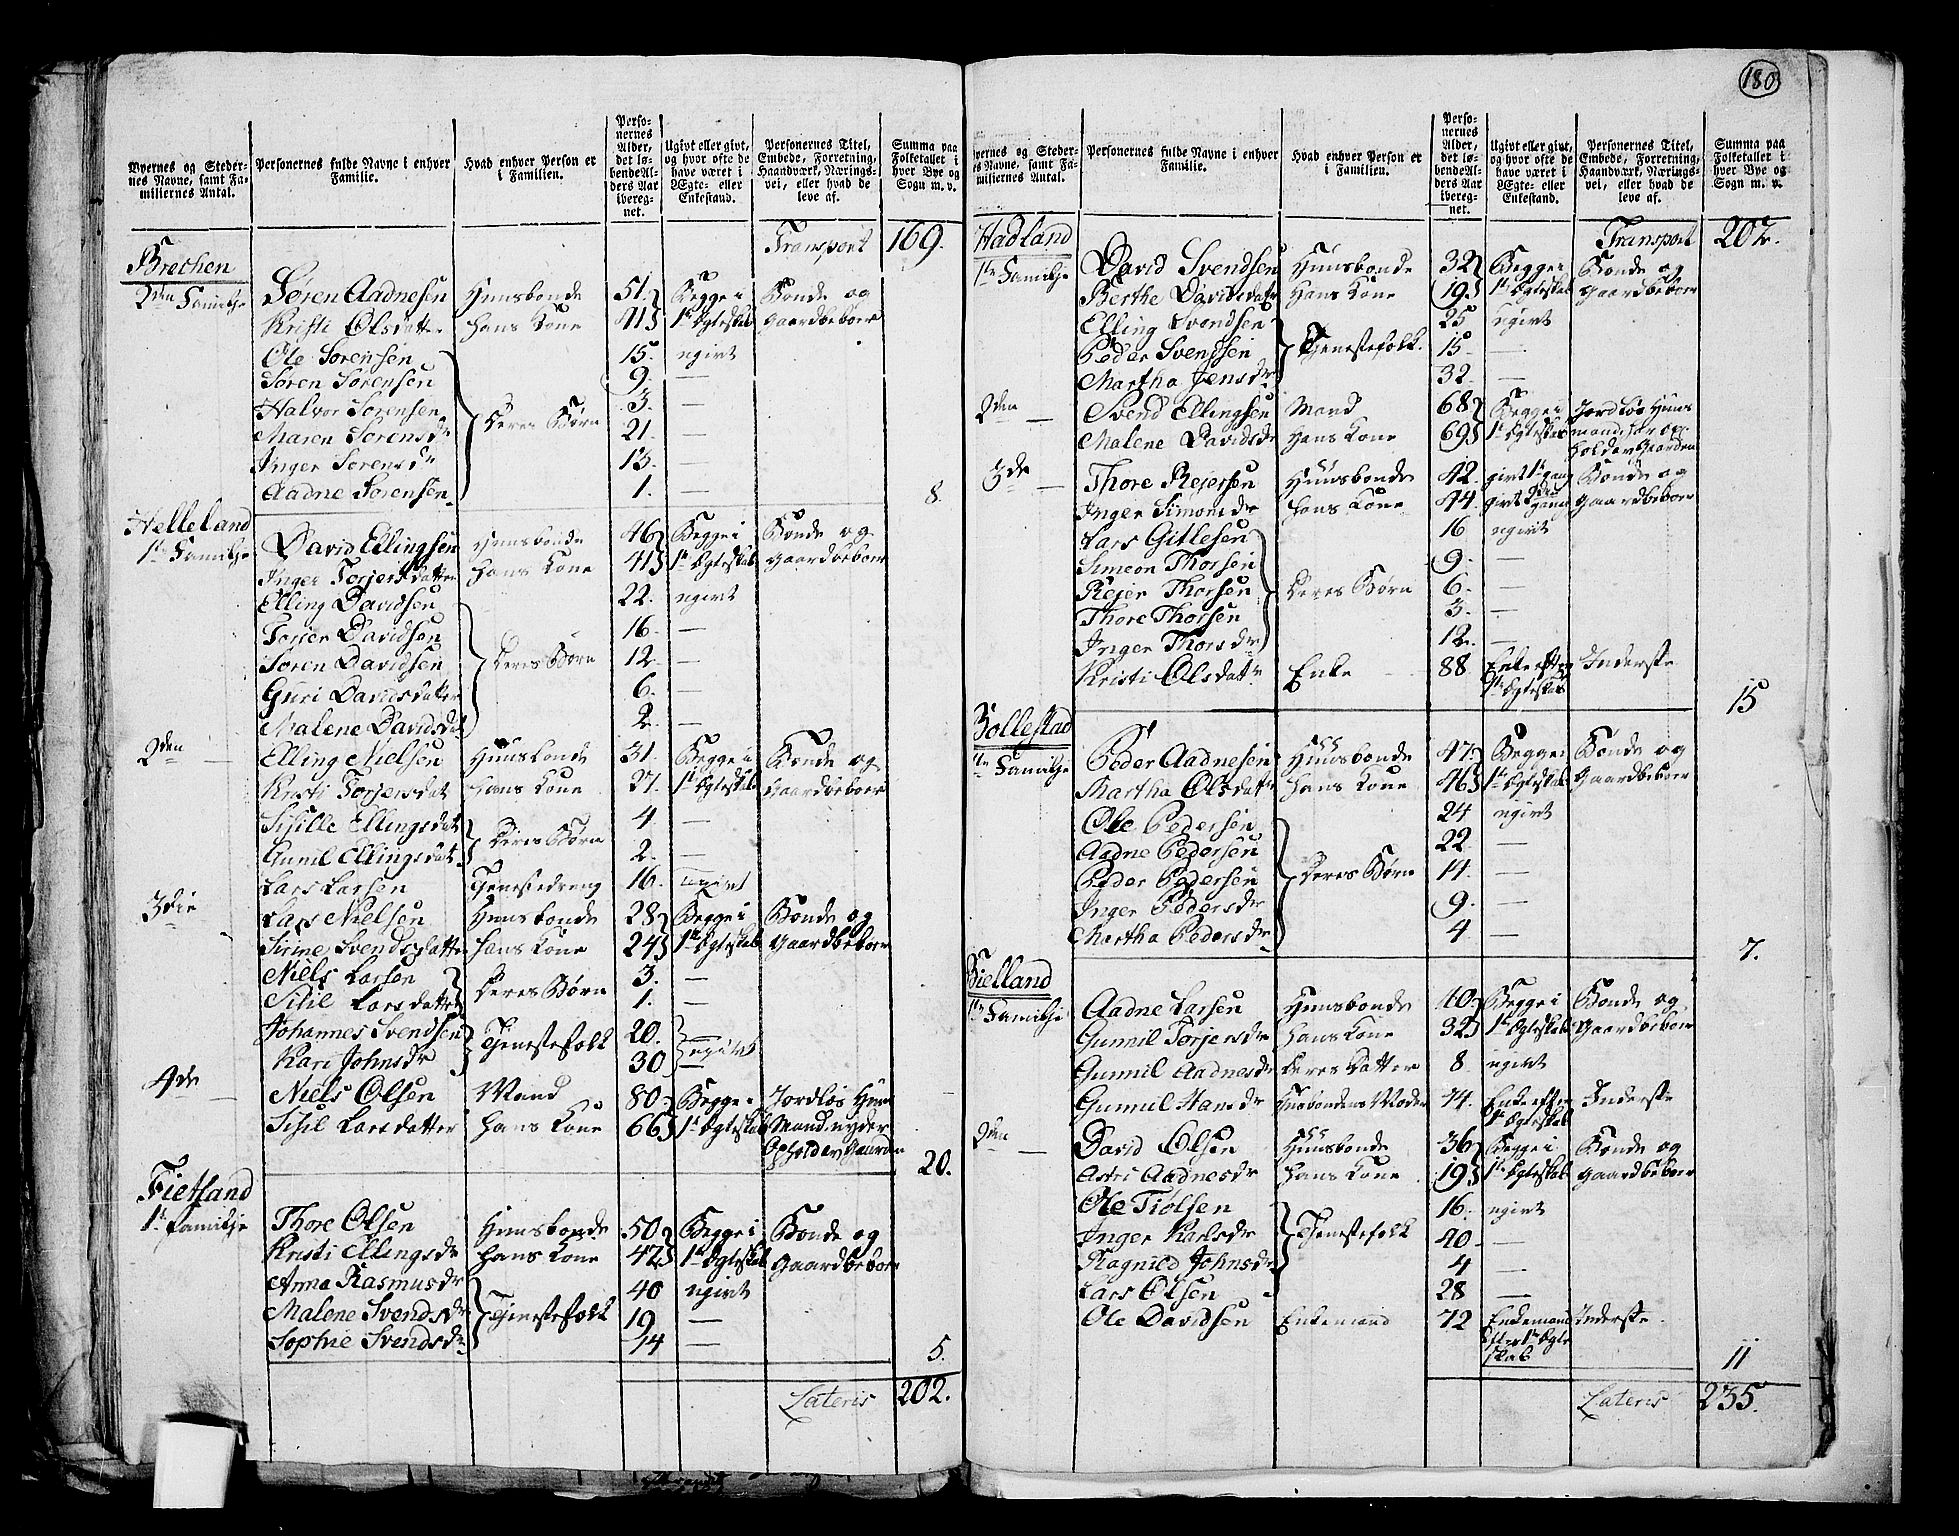 180
Byernes og Stedernes Navne, samt Familiernes Antal. | Personernes fulde Navne i enhver Familie. | Hvad enhver Person er i Familien. | Personernes Alder, det løbende Alders Aar iberegnet. | Ugivt eller givt, og hvor ofte de have været i Ægte- eller Enkestand. | Personernes Titel, Embede, Forretning, Haandværk, Næringsvei, eller hvad de leve af. | Summa paa Folketallet i hver Bye og Sogn m. v.
Transport 169.
Brechen
2den Familje Søren Aadnesen Huusbonde 51. Begge i Bonde og
Kristi Olsdatter Hans Kone 41 1te Egteskab Gaardbeboer
Ole Sørensen 15. ugivt
Søren Sørensen 9. —
Halvor Sorensen Deres Børn 3. —
Maren Sorensdr 21. —
Inger Sorensdr 13. —
Aadne Sørensen 1. — 8.
Helleland
1te Familje David Ellingsen Huusbonde 46 Begge i Bonde og
Inger Torjersdatter Hans Kone 41 1te Egteskab Gaardbeboer
Elling Davidsen 22. ugivt
Torjer Davidsen 16. —
Søren Davidsen Deres Børn 12. —
Guri Davidsdatter 6. —
Malene Davidsdat 2. —
2den — Elling Nielsen Huusbonde 31. Begge i Bonde og
Kristi Torjersdat Hans Kone 27. 1te Egteskab Gaardbeboer
Sisille Ellingsdat Deres Børn 4 —
Gunil Ellingsdat 2. —
Lars Larsen Tjenestedreng 16. ugivt
3die Lars Nielsen Huusbonde 28 Begge i Bonde og
Sirine Svendsdatter Hans Kone 24 1te Egteskab Gaardbeboer
Niels Larsen Deres Børn 3. —
Sisil Larsdatter 1. —
Johannes Svendsen Tjenestefolk 20. ugivt
Kari Johnsdr 30 —
4de Niels Olsen Mand 80 Begge i Jordløs Huus
Sisil Larsdatter Hans Kone 66 1te Egteskab Mand nyder
Ophold av Gaarden 20.
Fietland
1te Familje Thore Olsen Huusbonde 50 Begge i Bonde og
Kristi Ellingsdr Hans Kone 42 1te Egteskab Gaardbeboer
Anna Rasmusdr 40 ugivt
Malene Svendsdr Tjenestefolk 19 —
Sophie Svendsdr 14 — 5.
Lateris 202.
Byernes og Stedernes Navne, samt Familiernes Antal. | Personernes fulde Navne i enhver Familie. | Hvad enhver Person er i Familien. | Personernes Alder, det løbende Alders Aar iberegnet. | Ugivt eller givt, og hvor ofte de have været i Ægte- eller Enkestand. | Personernes Titel, Embede, Forretning, Haandværk, Næringsvei, eller hvad de leve af. | Summa paa Folketallet i hver Bye og Sogn m. v.
Hadland Transport 202.
1te Familje David Svendsen Huusbonde 32 Begge i Bonde og
Berthe Davidsdatr Hans Kone 19 1te Egteskab Gaardbeboer
Elling Svendsen 25 ugivt
Peder Svenssen Tjenestefolk 15 —
Martha Jensdr 32. —
2den — Svend Ellingsen Mand 68 Begge i Jordløs Huus
Malene Davidsdr Hans Kone 69 1te Egteskab mand
Hold av Gaarden
3de — Thore Rejersen Huusbonde 42. givt 1te gang Bonde og
Inger Simonsdr Hans Kone 44. givt 2den gang Gaardbeboer
Lars Gitlesen 16 ugivt
Simeon Thorsen 9. —
Rejer Thorsen Deres Børn 6. —
Thore Thorsen 3. —
Inger Thorsdr 12. —
Kristi Olsdatr Enke 88 Enke efter Inderste
1te Egteskab 15
Tollestad
1te Familje Peder Aadnesen Huusbonde 47. Begge i Bonde og
Martha Olsdatr Hans Kone 46 1te Egteskab Gaardbeboer
Ole Pedersen 24 ugivt
Aadne Pedersen 22. —
Peder Pedersen Deres Børn 14. —
Inger Pedersdr 9. —
Martha Pedersdr 4 — 7.
Bielland
1te Familje Aadne Larsen Huusbonde 40. Begge i Bonde og
Gunnil Torjersdr Hans Kone 32 1te Egteskab Gaardbeboer
Gunnil Aadnesdr Deres Datter 8 ugivt
Gunnul Hansdr Husbondens Moder 74. Enke efter Inderste
1te Egteskab
2den — David Olsen Huusbonde 36 Begge i Bonde og
Astri Aadnesdr Hans Kone 19 1te Egteskab Gaardbeboer
Ole Tiølsen 16. ugivt
Inger Karlsdr Tjenestefolk 40 —
Ragnild Johnsdr 4 —
Lars Olsen 28 —
Ole Davidsen Enkemand 72 Enkemand Inderste
Efter 1te Egte
skab 11
Lateris 235.